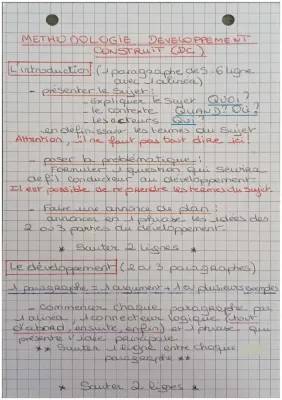 METHODOLOGIE DEVELOPPEMENT
CONSTRUIT (DC)
L'introduction (1 paragraphe de 5-6 ligne
avec 1 alinéa)
- présenter le sujet :
- expliquer le sujet QUOI ?
- le contexte QUAND ? OÙ ?
- les acteurs QUI ?
- en définissant les termes du sujet
Attention, il ne faut pas tout dire ici !
- poser la problématique :
Formuler 1 question qui servira
de fil conducteur au développement
Il est possible de reprendre les termes du sujet.
- Faire une annonce du plan :
annoncer en 1 phrase les idées des
2 ou 3 parties du développement.
* Sauter 2 lignes *
Le développement (2 ou 3 paragraphes)
1 paragraphe = 1 argument + 1 ou plusieurs exemples
- Commencer chaque paragraphe par
1 alinéa, 1 connecteur logique (tout
d'abord, ensuite, enfin) et 1 phrase qui
présente l'idée principale
** Sauter 1 ligne entre chaque
paragraphe **
* Sauter 2 lignes *